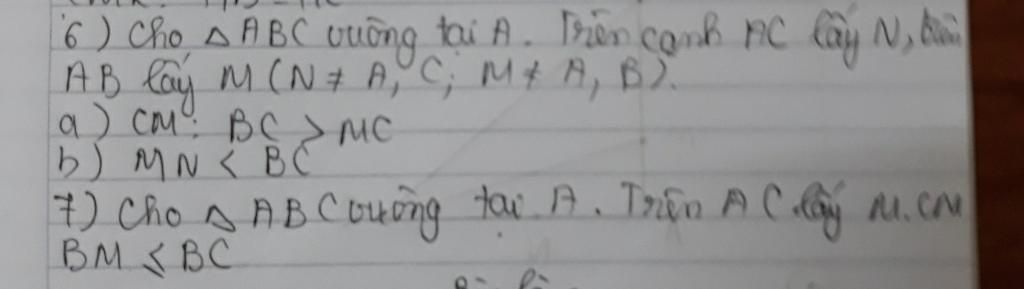 6) Cho △ ABC vuông tại A. Trên cạnh AC lấy N, trên
AB lấy M (N ≠ A, C; M ≠ A, B).
a) CM: BC > MC
b) MN < BC
7) Cho △ ABC vuông tại A. Trên AC lấy M. CM
BM ≤ BC